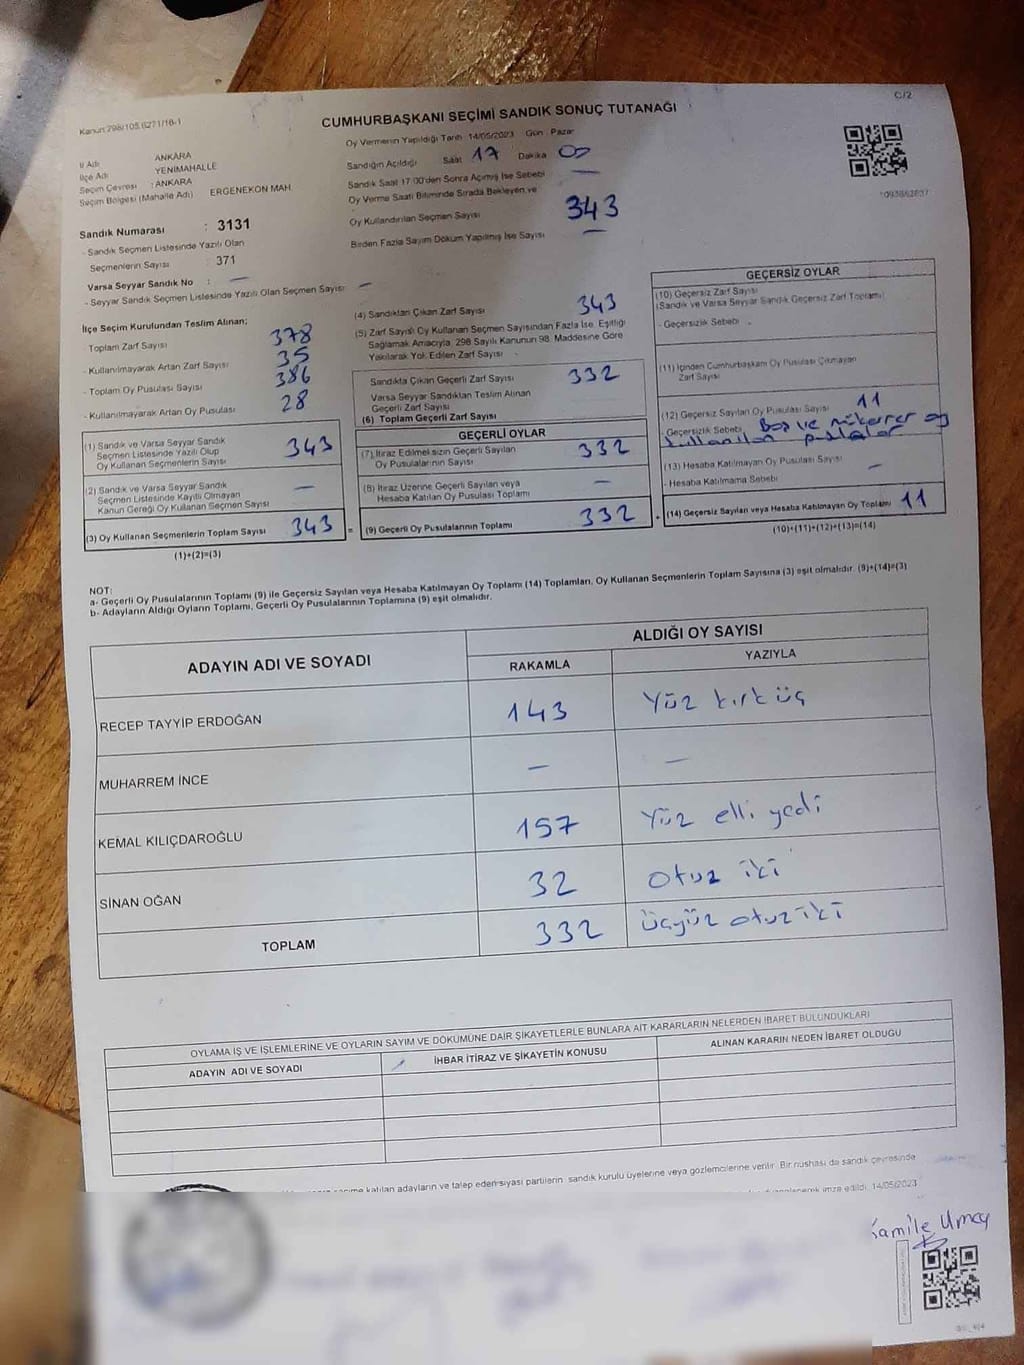 C/2
Kanun:298/105,6271/18-1
CUMHURBAŞKANI SEÇİMİ SANDIK SONUÇ TUTANAĞI
İl Adı ANKARA
İlçe Adı YENİMAHALLE
Seçim Çevresi : ANKARA
Seçim Bölgesi (Mahalle Adı) ERGENEKON MAH.
Oy Vermenin Yapıldığı Tarih 14/05/2023 Gün Pazar
Sandığın Açıldığı Saat 17 Dakika 00
Sandık Saat 17:00'den Sonra Açımış İse Sebebi —
Oy Verme Saati Bitiminde Sırada Bekleyen ve
Oy Kullandırılan Seçmen Sayısı 343
Birden Fazla Sayım Döküm Yapılmış İse Sayısı —
Sandık Numarası : 3131
- Sandık Seçmen Listesinde Yazılı Olan
Seçmenlerin Sayısı : 371
Varsa Seyyar Sandık No : —
- Seyyar Sandık Seçmen Listesinde Yazılı Olan Seçmen Sayısı: —
İlçe Seçim Kurulundan Teslim Alınan;
Toplam Zarf Sayısı 378
- Kullanılmayarak Artan Zarf Sayısı 35
- Toplam Oy Pusulası Sayısı 386
- Kullanılmayarak Artan Oy Pusulası 28
(1) Sandık ve Varsa Seyyar Sandık
Seçmen Listesinde Yazılı Olup
Oy Kullanan Seçmenlerin Sayısı 343
(2) Sandık ve Varsa Seyyar Sandık
Seçmen Listesinde Kayıtlı Olmayan
Kanun Gereği Oy Kullanan Seçmen Sayısı —
(3) Oy Kullanan Seçmenlerin Toplam Sayısı 343 =
(1)+(2)=(3)
(4) Sandıktan Çıkan Zarf Sayısı 343
(5) Zarf Sayısı Oy Kullanan Seçmen Sayısından Fazla İse, Eşitliği
Sağlamak Amacıyla, 298 Sayılı Kanunun 98. Maddesine Göre
Yakılarak Yok Edilen Zarf Sayısı
Sandıkta Çıkan Geçerli Zarf Sayısı 332
Varsa Seyyar Sandıktan Teslim Alınan
Geçerli Zarf Sayısı
(6) Toplam Geçerli Zarf Sayısı
GEÇERLİ OYLAR
(7) İtiraz Edilmeksizin Geçerli Sayılan
Oy Pusulalarının Sayısı 332
(8) İtiraz Üzerine Geçerli Sayılan veya
Hesaba Katılan Oy Pusulası Toplamı —
(9) Geçerli Oy Pusulalarının Toplamı 332 +
GEÇERSİZ OYLAR
(10) Geçersiz Zarf Sayısı
(Sandık ve Varsa Seyyar Sandık Geçersiz Zarf Toplamı)
- Geçersizlik Sebebi
(11) İçinden Cumhurbaşkanı Oy Pusulası Çıkmayan
Zarf Sayısı
(12) Geçersiz Sayılan Oy Pusulası Sayısı 11
- Geçersizlik Sebebi Boş ve mükerrer oy
kullanılan pusulalar
(13) Hesaba Katılmayan Oy Pusulası Sayısı —
- Hesaba Katılmama Sebebi
(14) Geçersiz Sayılan veya Hesaba Katılmayan Oy Toplamı 11
(10)+(11)+(12)+(13)=(14)
NOT:
a- Geçerli Oy Pusulalarının Toplamı (9) ile Geçersiz Sayılan veya Hesaba Katılmayan Oy Toplamı (14) Toplamları, Oy Kullanan Seçmenlerin Toplam Sayısına (3) eşit olmalıdır. (9)+(14)=(3)
b- Adayların Aldığı Oyların Toplamı, Geçerli Oy Pusulalarının Toplamına (9) eşit olmalıdır.
ADAYIN ADI VE SOYADI ALDIĞI OY SAYISI
RAKAMLA YAZIYLA
RECEP TAYYİP ERDOĞAN 143 Yüz kırk üç
MUHARREM İNCE — —
KEMAL KILIÇDAROĞLU 157 Yüz elli yedi
SİNAN OĞAN 32 Otuz iki
TOPLAM 332 üçyüz otuz iki
OYLAMA İŞ VE İŞLEMLERİNE VE OYLARIN SAYIM VE DÖKÜMÜNE DAİR ŞİKAYETLERLE BUNLARA AİT KARARLARIN NELERDEN İBARET BULUNDUKLARI
ADAYIN ADI VE SOYADI İHBAR İTİRAZ VE ŞİKAYETİN KONUSU ALINAN KARARIN NEDEN İBARET OLDUĞU
katılan adayların ve talep eden siyasi partilerin sandık kurulu üyelerine veya gözlemcilerine verilir. Bir nüshası da sandık çevresinde
imza edildi. 14/05/2023
Kamile Umaç